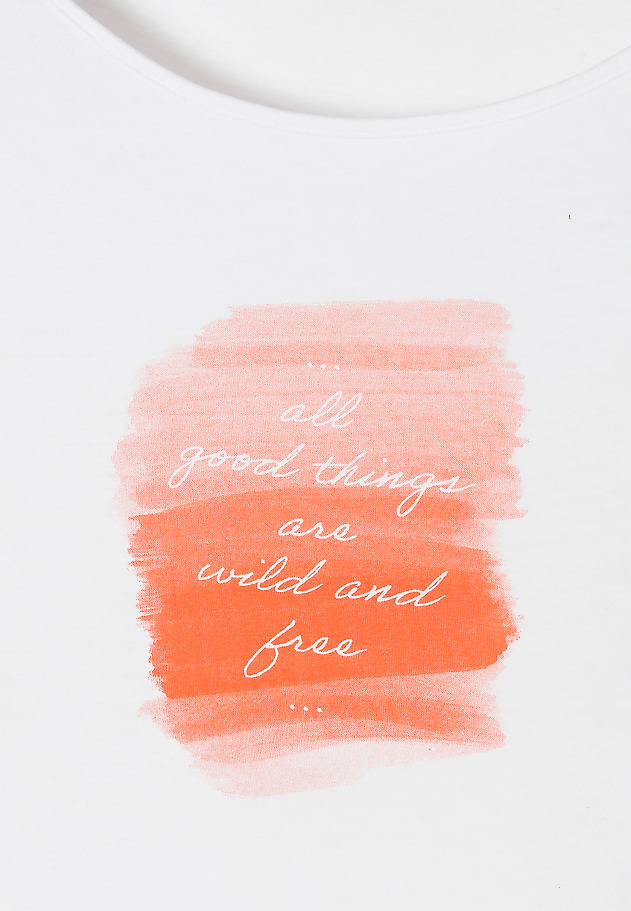 ...
all
good things
are
wild and
free
...